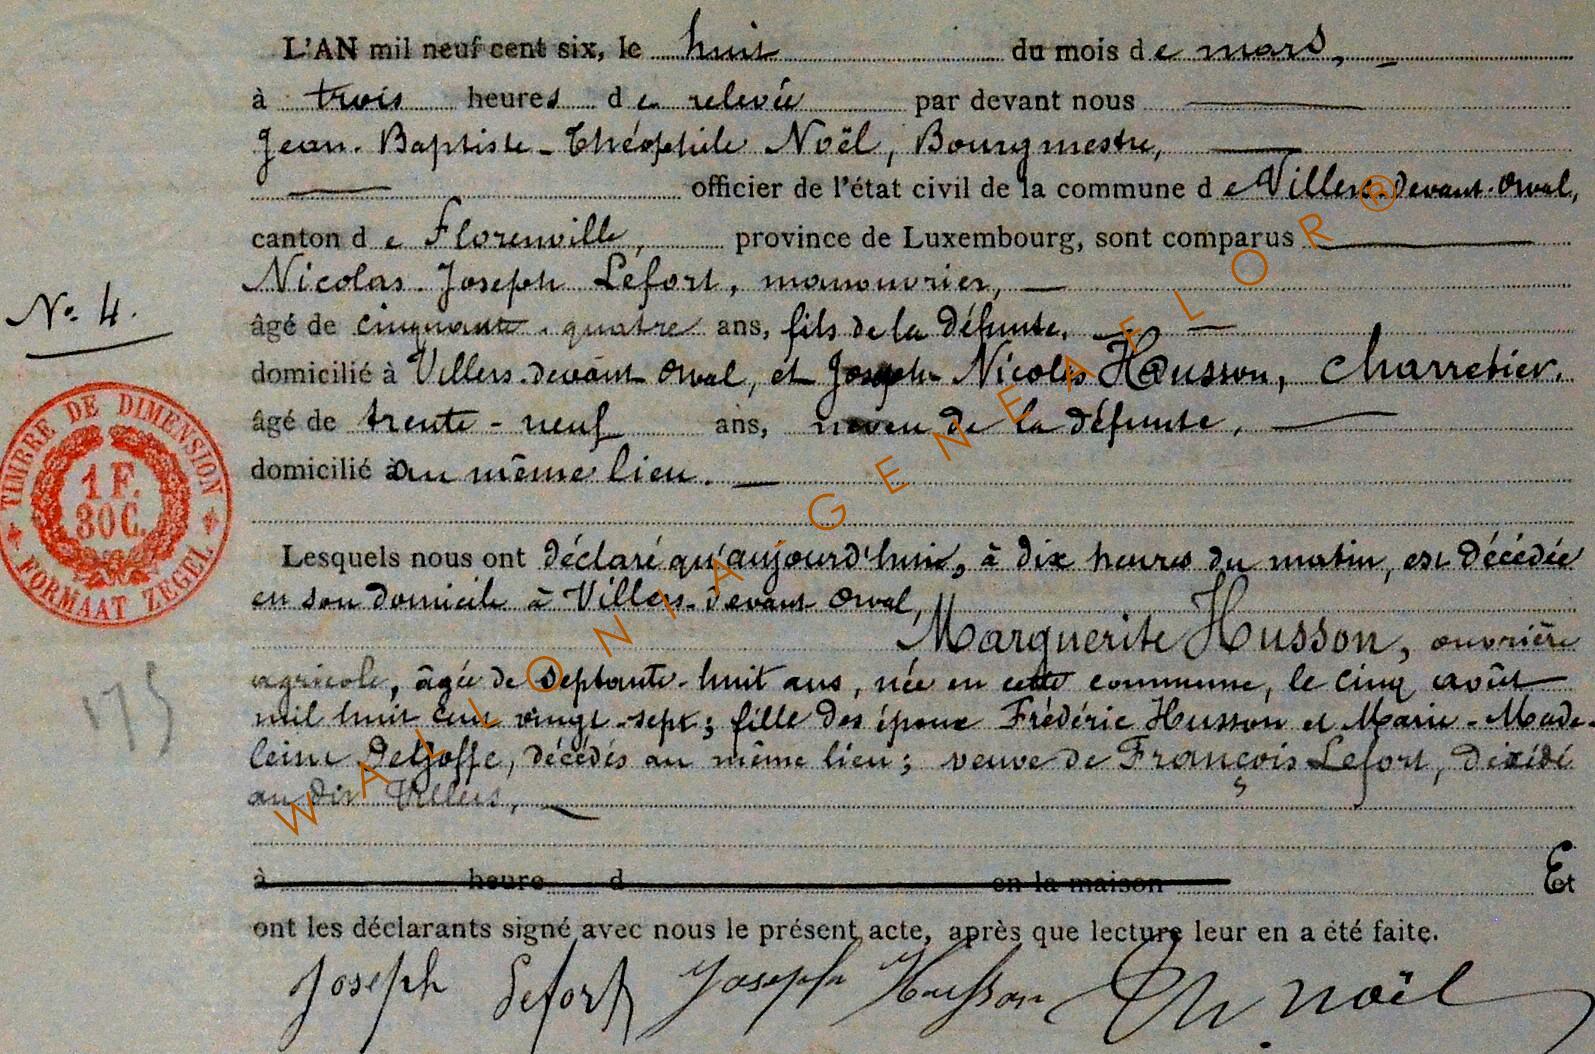 L'AN mil neuf cent six, le huit du mois de mars,
à trois heures de relevée par devant nous
Jean-Baptiste-Théophile Noël, Bourgmestre,
officier de l'état civil de la commune de Villers-devant-Orval,
canton de Florenville, province de Luxembourg, sont comparus
Nicolas-Joseph Lefort, manouvrier,
No. 4.
âgé de cinquante-quatre ans, fils de la défunte,
domicilié à Villers-devant Orval, et Joseph Nicolas Husson, charretier,
âgé de trente-neuf ans, neveu de la défunte,
domicilié au même lieu.
TIMBRE DE DIMENSION
1 F.
80 C.
FORMAAT ZEGEL
Lesquels nous ont déclaré qu'aujourd'hui, à dix heures du matin, est décédée
en son domicile à Villers-devant Orval,
Marguerite Husson, ouvrière
agricole, âgée de septante-huit ans, née en cette commune, le cinq août
mil huit cent vingt-sept; fille des époux Frédéric Husson et Marie-Made-
leine Deljoffe, décédés au même lieu; veuve de François Lefort, décédé
au dit Villers,
175
à heure d en la maison Et
ont les déclarants signé avec nous le présent acte, après que lecture leur en a été faite.
Joseph Lefort Joseph Husson Th. Noël
WALLONIA GENEAFLOR ®